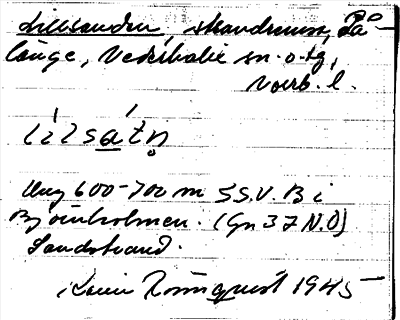 Lillsanden, strandremsa, På-
länge, Nederkalix sn. o. tg,
Norrb. l.
Ung 600-700 m S.S.V. B i
Björnholmen. (Gn 37 N.O)
Sandstrand.
Rönnquist 1945